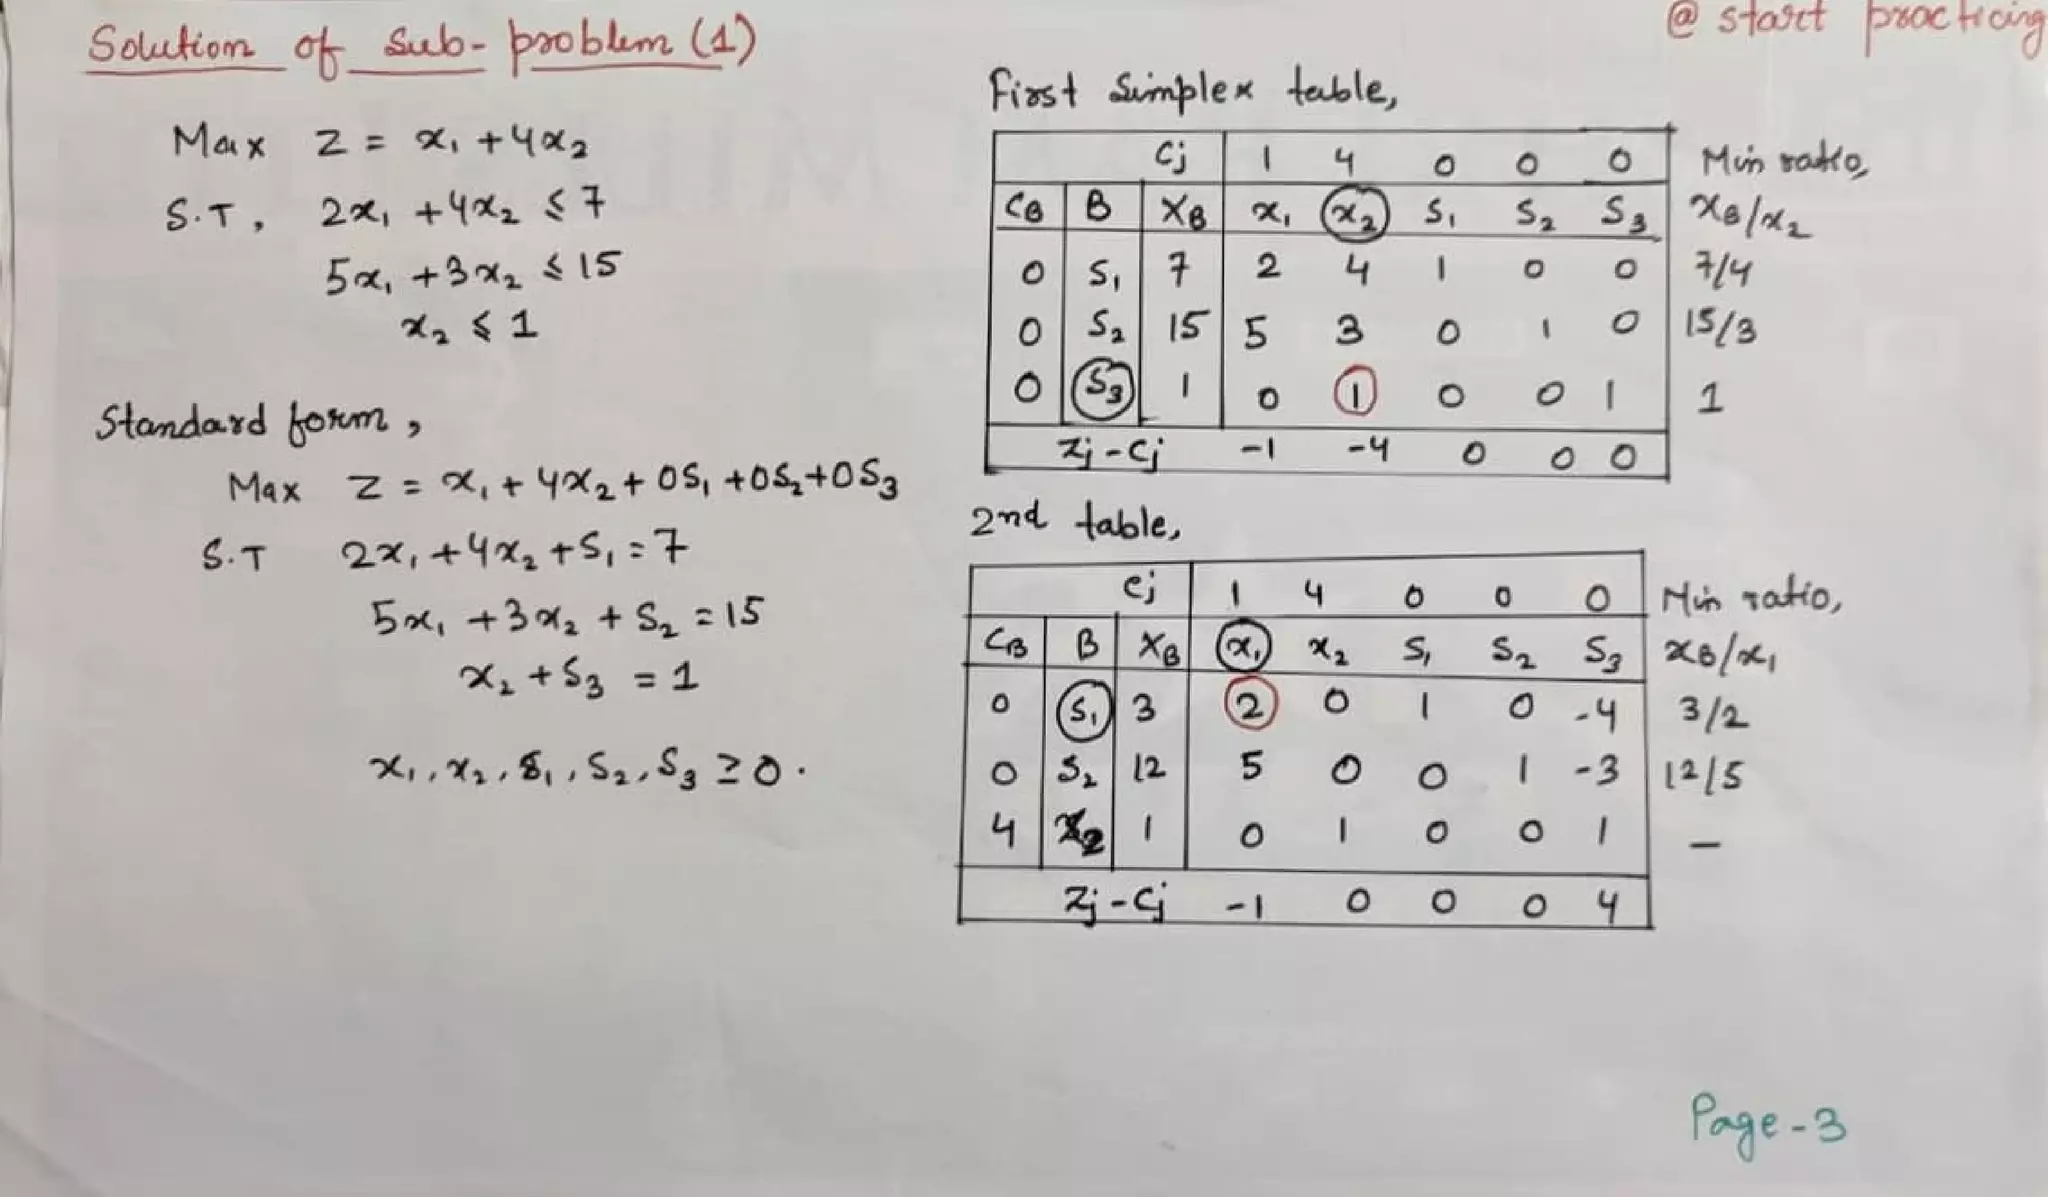 @ start practicing
Solution of Sub-problem (1)
Max Z = x₁ + 4x₂
S.T, 2x₁ + 4x₂ ≤ 7
5x₁ + 3x₂ ≤ 15
x₂ ≤ 1
Standard form,
Max Z = x₁ + 4x₂ + 0S₁ + 0S₂ + 0S₃
S.T 2x₁ + 4x₂ + S₁ = 7
5x₁ + 3x₂ + S₂ = 15
x₂ + S₃ = 1
x₁, x₂, S₁, S₂, S₃ ≥ 0.
First Simplex table,
Cj 1 4 0 0 0 Min ratio,
CB B XB x₁ x₂ S₁ S₂ S₃ XB/x₂
0 S₁ 7 2 4 1 0 0 7/4
0 S₂ 15 5 3 0 1 0 15/3
0 S₃ 1 0 1 0 0 1 1
Zj - Cj -1 -4 0 0 0
2nd table,
Cj 1 4 0 0 0 Min ratio,
CB B XB x₁ x₂ S₁ S₂ S₃ XB/x₁
0 S₁ 3 2 0 1 0 -4 3/2
0 S₂ 12 5 0 0 1 -3 12/5
4 x₂ 1 0 1 0 0 1 —
Zj - Cj -1 0 0 0 4
Page-3